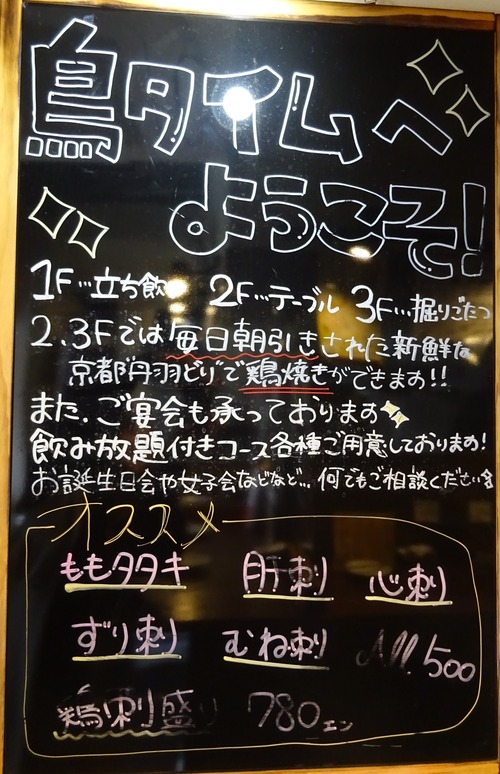 鳥タイムへ
ようこそ!
1F…立ち飲み 2F…テーブル 3F…掘りごたつ
2.3Fでは毎日朝引きされた新鮮な
京都丹羽どりで鶏焼きができます!!
また、ご宴会も承っております
飲み放題付きコース各種ご用意しております!
お誕生日会や女子会などなど…何でもご相談ください
オススメ
ももタタキ 肝刺り 心刺り
ずり刺り むね刺り All 500
鶏刺り盛り 780エン